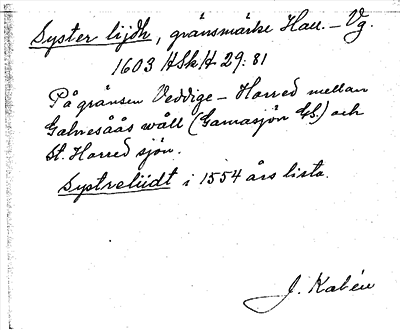 Syster lijdh, gränsmärke Hall. – Vg.
1603 HSkH 29:81
På gränsen Veddige – Horred mellan
Galnesåås wåll (Gamasjön GS.) och
St. Horred sjön.
Systreliidt i 1554 års lista.
J. Kalén